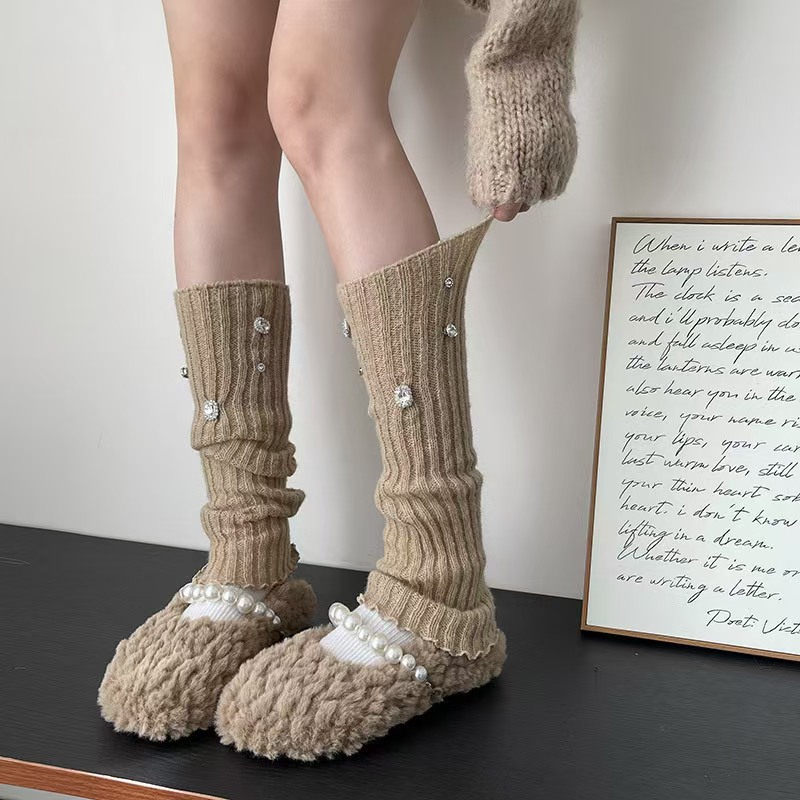 When i write a le
the lamp listens.
The clock is a sea
and i'll probably do
and fall asleep in
the lanterns are war
also hear you in the
voice, your name ri
your lips, your car
last warm love, still
your thin heart so
heart. i don't know
lifting in a dream.
Whether it is me or
are writing a letter.
Poet: Vist